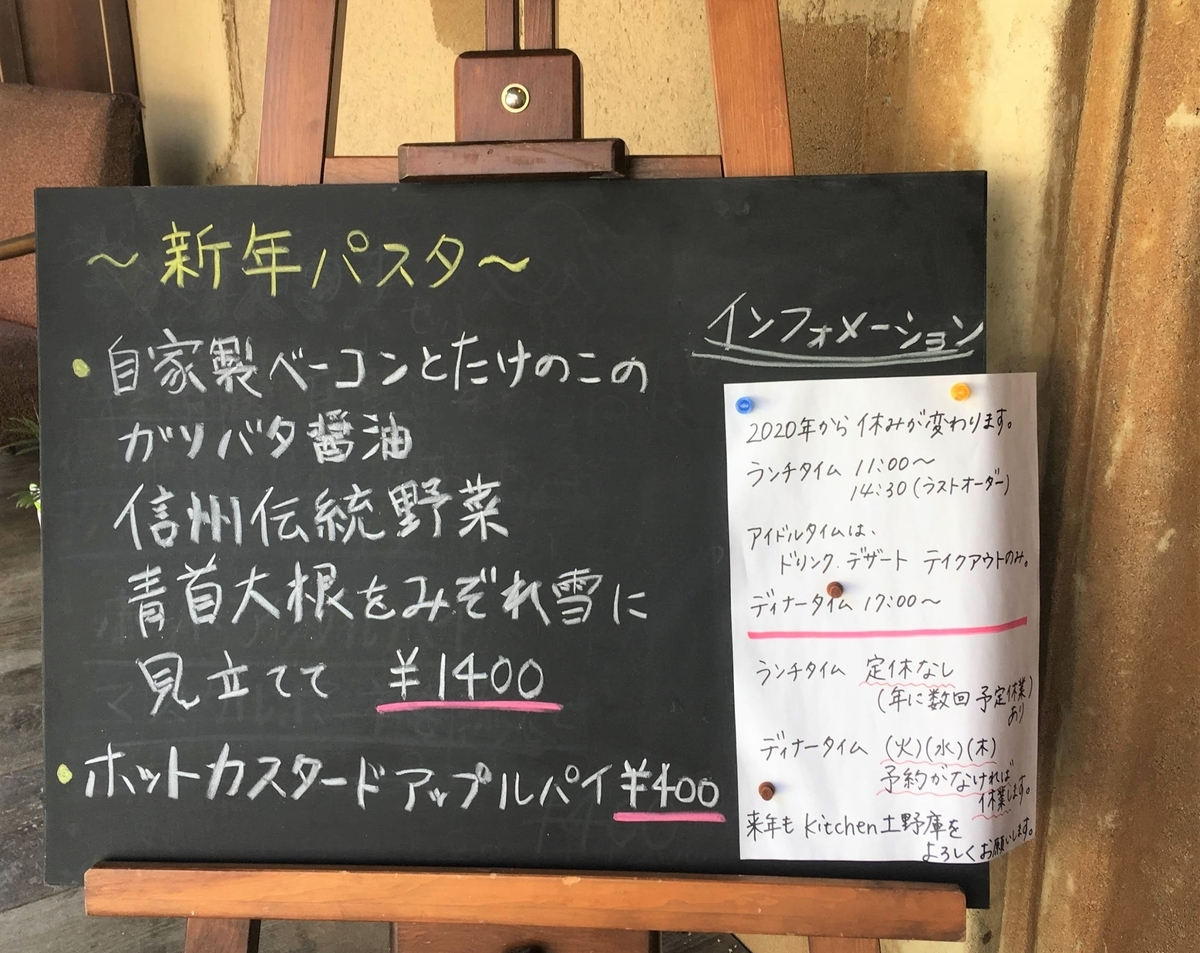 ～新年パスタ～
・自家製ベーコンとたけのこの
ガリバタ醤油
信州伝統野菜
青首大根をみぞれ雪に
見立てて ¥1400
・ホットカスタードアップルパイ ¥400
インフォメーション
2020年から休みが変わります。
ランチタイム 11:00～
14:30(ラストオーダー)
アイドルタイムは、
ドリンク.デザート テイクアウトのみ。
ディナータイム 17:00～
ランチタイム 定休なし
(年に数回予定休業)
あり
ディナータイム (火)(水)(木)
予約がなければ
休業します。
来年も Kitchen土野庫を
よろしくお願いします。